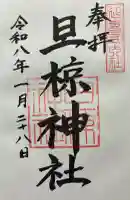 奉拝
旦椋神社
令和八年一月二十八日